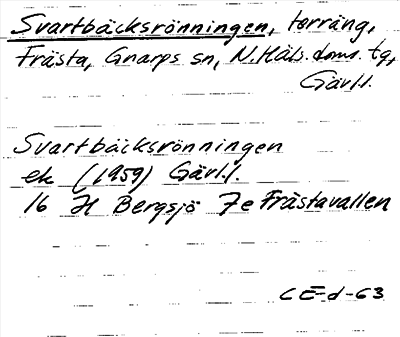 Svartbäcksrönningen, torräng,
Frästa, Gnarps sn, N.Häls. doms. tg,
Gävl.l.
Svartbäcksrönningen
ek (1959) Gävl.l.
16 H Bergsjö 7e Frästavallen
CE-d-63